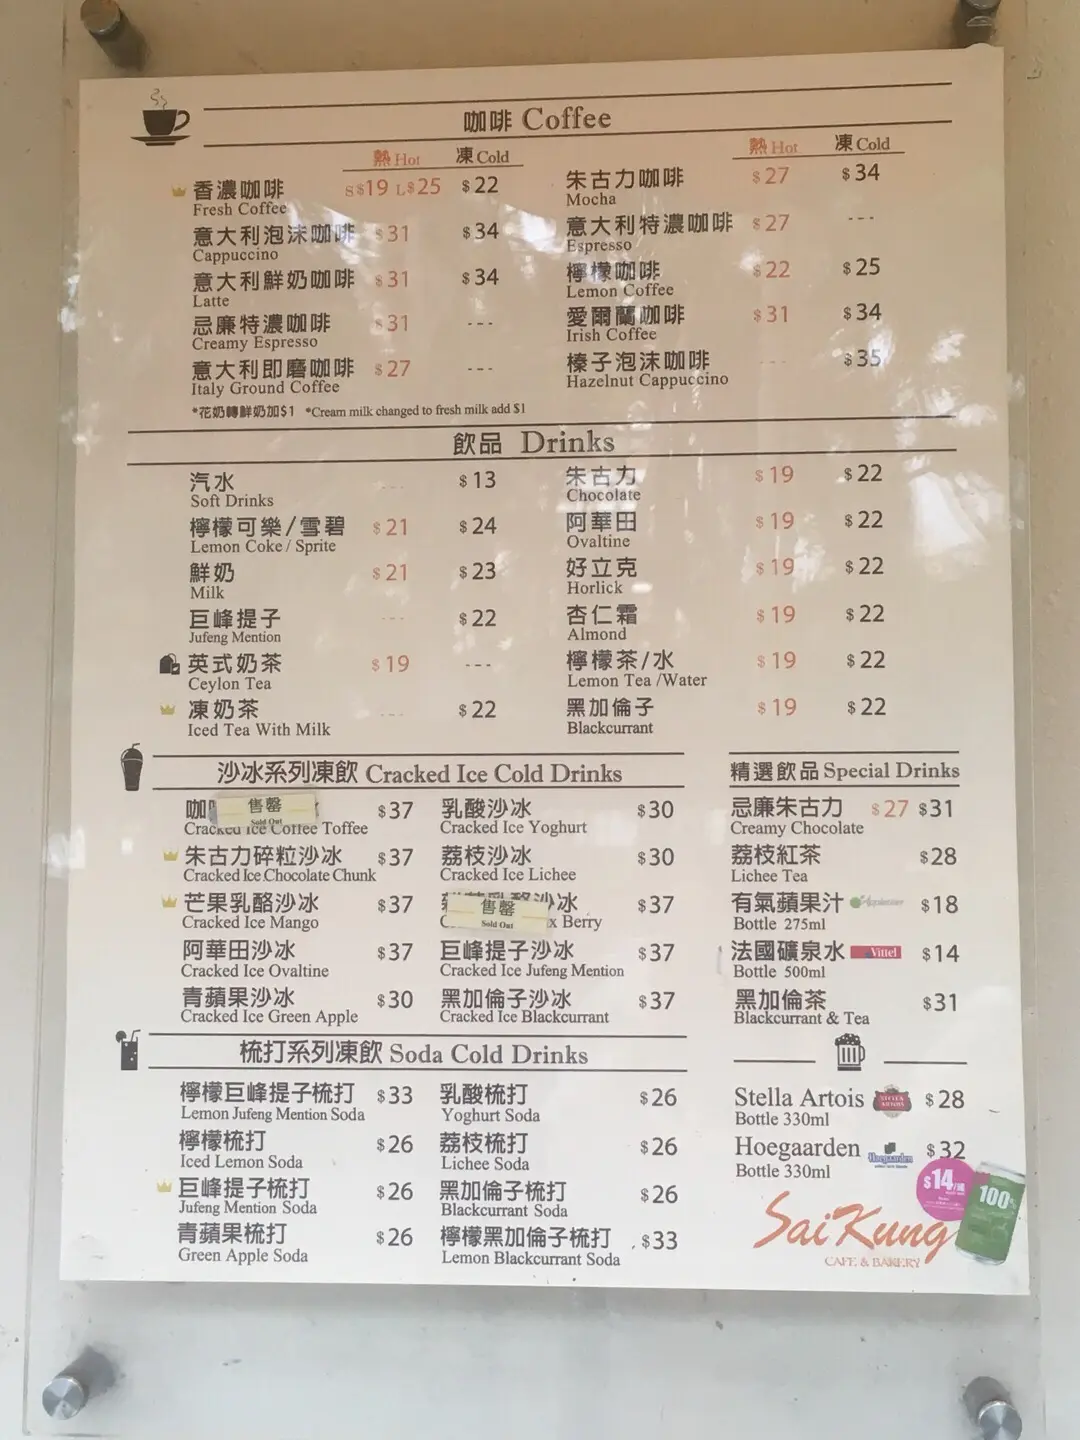 咖啡 Coffee
熱 Hot 凍 Cold
香濃咖啡 S$19 L$25 $22
Fresh Coffee
意大利泡沫咖啡 $31 $34
Cappuccino
意大利鮮奶咖啡 $31 $34
Latte
忌廉特濃咖啡 $31 ---
Creamy Espresso
意大利即磨咖啡 $27 ---
Italy Ground Coffee
熱 Hot 凍 Cold
朱古力咖啡 $27 $34
Mocha
意大利特濃咖啡 $27 ---
Espresso
檸檬咖啡 $22 $25
Lemon Coffee
愛爾蘭咖啡 $31 $34
Irish Coffee
榛子泡沫咖啡 --- $35
Hazelnut Cappuccino
*花奶轉鮮奶加$1 *Cream milk changed to fresh milk add $1
飲品 Drinks
汽水 --- $13
Soft Drinks
檸檬可樂/雪碧 $21 $24
Lemon Coke / Sprite
鮮奶 $21 $23
Milk
巨峰提子 --- $22
Jufeng Mention
英式奶茶 $19 ---
Ceylon Tea
凍奶茶 --- $22
Iced Tea With Milk
朱古力 $19 $22
Chocolate
阿華田 $19 $22
Ovaltine
好立克 $19 $22
Horlick
杏仁霜 $19 $22
Almond
檸檬茶/水 $19 $22
Lemon Tea /Water
黑加倫子 $19 $22
Blackcurrant
沙冰系列凍飲 Cracked Ice Cold Drinks
咖 售罄 $37
Sold Out
Cracked Ice Coffee Toffee
朱古力碎粒沙冰 $37
Cracked Ice Chocolate Chunk
芒果乳酪沙冰 $37
Cracked Ice Mango
阿華田沙冰 $37
Cracked Ice Ovaltine
青蘋果沙冰 $30
Cracked Ice Green Apple
乳酸沙冰 $30
Cracked Ice Yoghurt
荔枝沙冰 $30
Cracked Ice Lichee
售罄 沙冰 $37
Sold Out
Berry
巨峰提子沙冰 $37
Cracked Ice Jufeng Mention
黑加倫子沙冰 $37
Cracked Ice Blackcurrant
精選飲品 Special Drinks
忌廉朱古力 $27 $31
Creamy Chocolate
荔枝紅茶 $28
Lichee Tea
有氣蘋果汁 Appletiser $18
Bottle 275ml
法國礦泉水 Vittel $14
Bottle 500ml
黑加倫茶 $31
Blackcurrant & Tea
梳打系列凍飲 Soda Cold Drinks
檸檬巨峰提子梳打 $33
Lemon Jufeng Mention Soda
檸檬梳打 $26
Iced Lemon Soda
巨峰提子梳打 $26
Jufeng Mention Soda
青蘋果梳打 $26
Green Apple Soda
乳酸梳打 $26
Yoghurt Soda
荔枝梳打 $26
Lichee Soda
黑加倫子梳打 $26
Blackcurrant Soda
檸檬黑加倫子梳打 $33
Lemon Blackcurrant Soda
Stella Artois STELLA ARTOIS $28
Bottle 330ml
Hoegaarden Hoegaarden $32
Bottle 330ml
$14/罐
100%
Sai Kung
CAFE & BAKERY